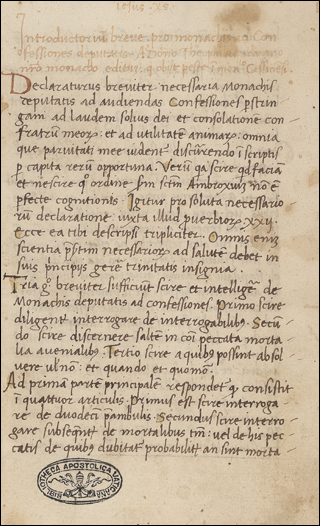 iesus. xs.
Introductorium breve pro monachis ad con
fessiones deputatis
monacho editus
Declaraturus breviter necessaria Monachis
deputatis ad audiendas Confessiones pstrin
gam ad laudem solius dei et consolatione con
fratrū meoꝝ et ad utilitatē animaꝝ omnia
que parvitati mee vident discurrendo i scriptis
p capita rerū opportuna. Verū qa scire qd faciā
et nescire q ordine fm sctm Ambroxiuz nō ē
pfecte cognitionis. Igitur pro soluta necessario
rū declaratione iuxta illud puerbioꝝ xxii
Ecce ea tibi descripsi tripliciter. Omnis eniz
scientia pstim necessarioꝝ ad salutē debet in
suis principiis gerē trinitatis insignia.
Tria g breviter sufficiūt scire et intelligē de
Monachis deputatis ad confessiones. Primo scire
diligent interrogare de interrogabilibꝫ. Secū
do scire discernere saltē in cōi peccata morta
lia a venialibꝫ. Tertio scire a quibꝫ possint absol
vere ul nō: et quando et quomō.
Ad primā partē principalē respondet q consistit
i quattuor articulis. Primus est scire interroga
re de duodeci pambulis. Secundus scire interro
gare subseqnt de mortalibus tm: vel de his pec
catis de quibꝫ dubitat probabilit an sint morta
BIBLIOTHECA APOSTOLICA VATICANA